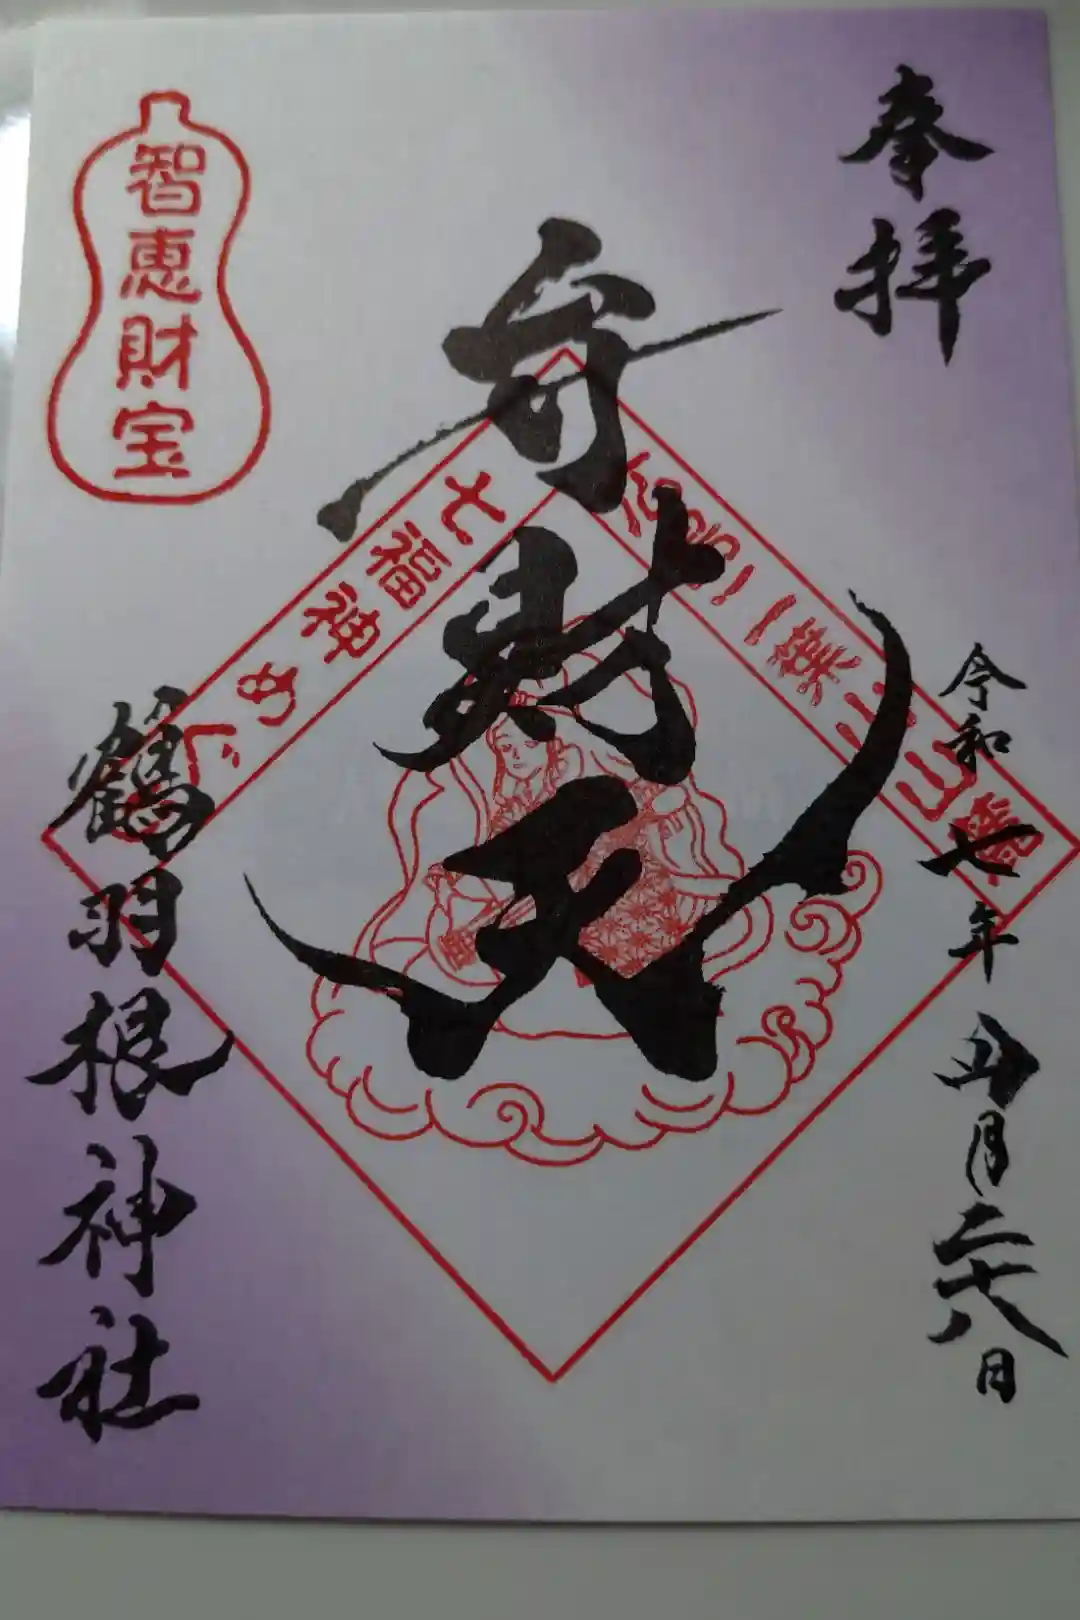 奉拝
令和七年五月二十八日
弁財天
七福神めぐ
鶴羽根神社
智恵財宝